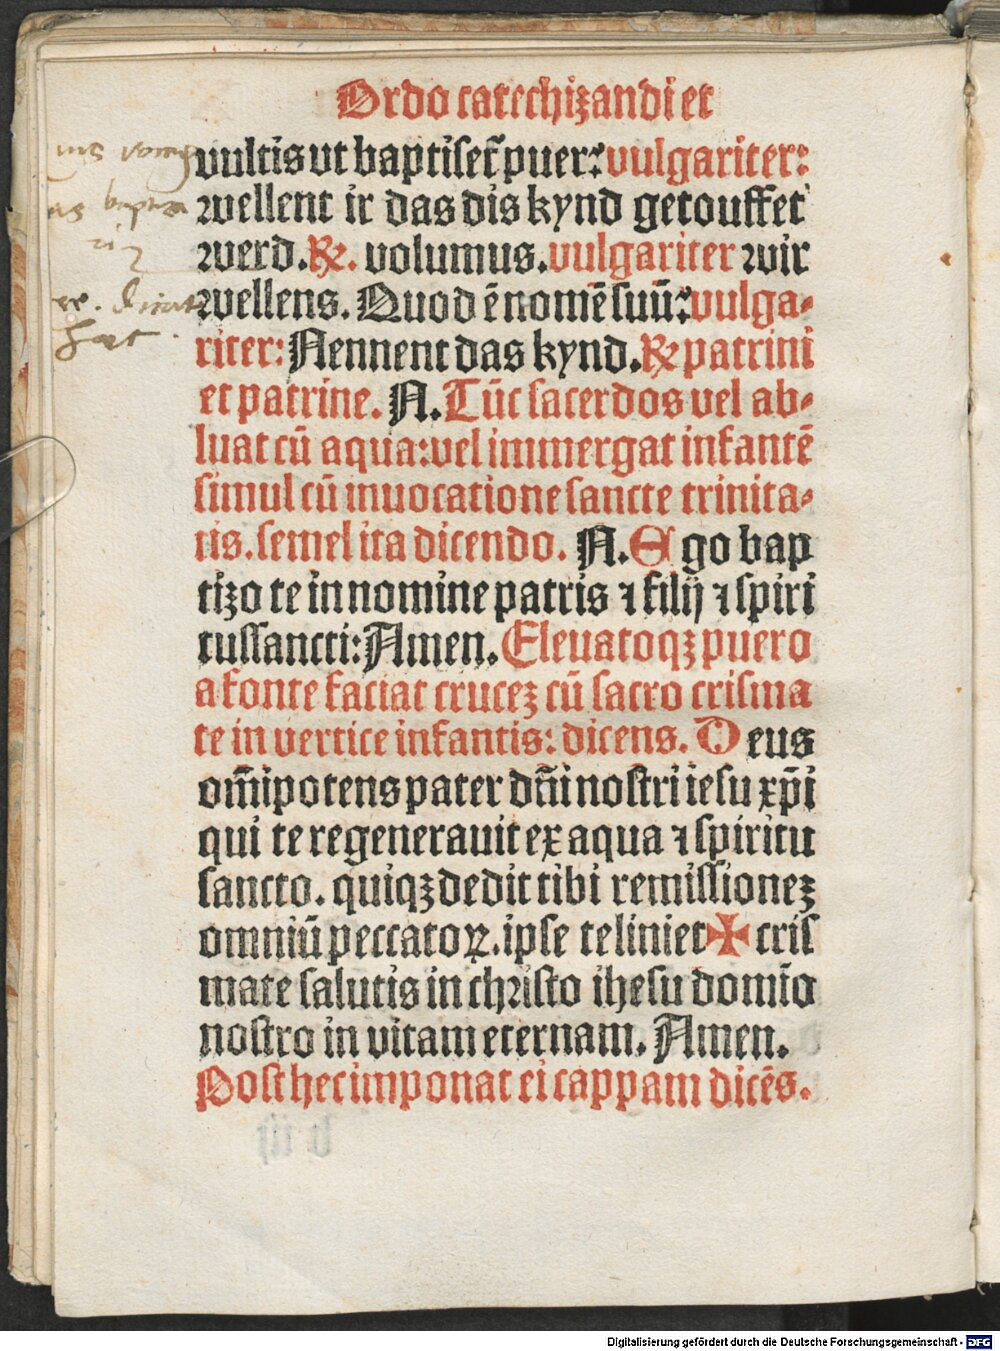 Ordo catechizandi et
vultis vt baptiſet̄ puer? vulgariter:
wellent ir das dis kynd getouffet
werd. ℟. volumus. vulgariter wir
wellens. Quod ē nomē ſuū? vulga-
riter: Nennent das kynd. ℟ patrini
et patrine. N. Tūc ſacerdos vel ab-
luat cū aqua: vel immergat infantē
ſimul cū inuocatione ſancte trinita-
tis. ſemel ita dicendo. N. Ego bap
tiʒo te in nomine patris ⁊ filij ⁊ ſpiri
tuſſancti: Amen. Eleuatoqʒ puero
a fonte faciat cruceʒ cū ſacro criſma
te in vertice infantis: dicens. Deus
om̄ipotens pater dn̄i noſtri ieſu xp̄i
qui te regenerauit ex aqua ⁊ ſpiritu
ſancto. quiqʒ dedit tibi remiſſioneʒ
omniū peccatoꝝ. ipſe te liniet ✠ criſ
mate ſalutis in chriſto iheſu domīo
noſtro in vitam eternam. Amen.
Poſt hec imponat ei cappam dicēs.
Digitalisierung gefördert durch die Deutsche Forschungsgemeinschaft - DFG